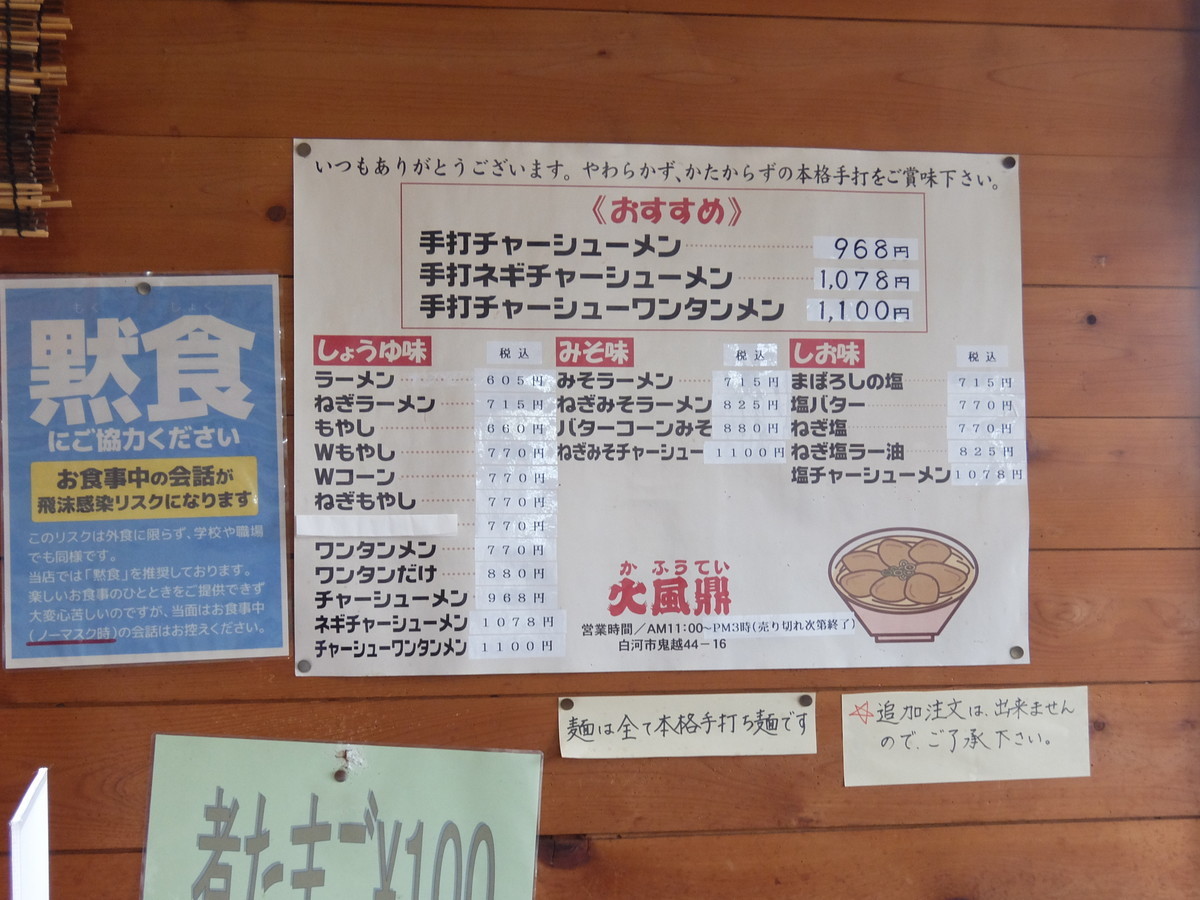 いつもありがとうございます。やわらかず、かたからずの本格手打をご賞味下さい。
《おすすめ》
手打チャーシューメン 968円
手打ネギチャーシューメン 1,078円
手打チャーシューワンタンメン 1,100円
しょうゆ味 税込
ラーメン 605円
ねぎラーメン 715円
もやし 660円
Wもやし 770円
Wコーン 770円
ねぎもやし 770円
770円
ワンタンメン 770円
ワンタンだけ 880円
チャーシューメン 968円
ネギチャーシューメン 1078円
チャーシューワンタンメン 1100円
みそ味 税込
みそラーメン 715円
ねぎみそラーメン 825円
バターコーンみそ 880円
ねぎみそチャーシュー 1100円
しお味 税込
まぼろしの塩 715円
塩バター 770円
ねぎ塩 770円
ねぎ塩ラー油 825円
塩チャーシューメン 1078円
かふうてい
火風鼎
営業時間／AM11:00~PM3時(売り切れ次第終了)
白河市鬼越44-16
もくしょく
黙食
にご協力ください
お食事中の会話が
飛沫感染リスクになります
このリスクは外食に限らず、学校や職場
でも同様です。
当店では「黙食」を推奨しております。
楽しいお食事のひとときをご提供できず
大変心苦しいのですが、当面はお食事中
(ノーマスク時)の会話はお控えください。
麺は全て本格手打ち麺です
☆追加注文は、出来ません
ので、ご了承下さい。
煮たまご¥100